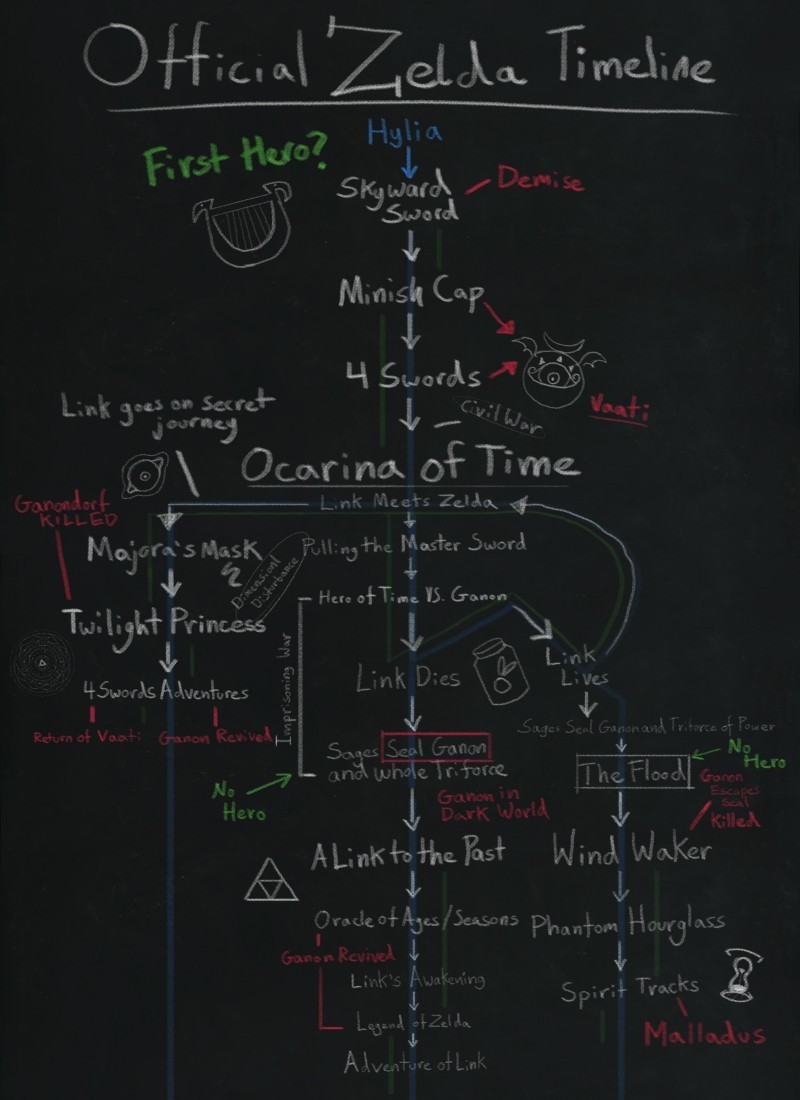 Official Zelda Timeline
Hylia
First Hero?
Skyward
Sword
Demise
Minish Cap
4 Swords
Vaati
Civil War
Link goes on secret
journey
Ocarina of Time
Link Meets Zelda
Ganondorf
KILLED
Majora's Mask
Dimensional
Disturbance
Pulling the Master Sword
Hero of Time VS. Ganon
Twilight Princess
Imprisoning War
Link Dies
Link
Lives
4 Swords Adventures
Return of Vaati
Ganon Revived
Sages Seal Ganon and Triforce of Power
Sages Seal Ganon
and whole Triforce
No
Hero
The Flood
No
Hero
Ganon
Escapes
Seal
Killed
Ganon in
Dark World
A Link to the Past
Wind Waker
Oracle of Ages/Seasons
Phantom Hourglass
Ganon Revived
Link's Awakening
Spirit Tracks
Legend of Zelda
Malladus
Adventure of Link